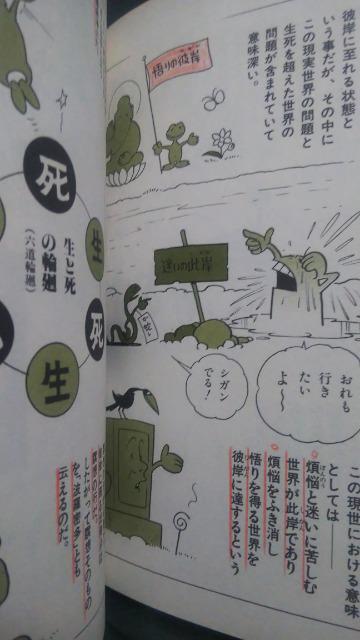 彼岸に至れる状態と
いう事だが、その中に
この現実世界の問題と
生死を超えた世界の
問題が含まれていて
意味深い。
悟りの彼岸
迷いの此岸
おれも
行き
たい
よ〜
シガン
でる!
この現世における意味
としては——
煩悩と迷いに苦しむ
世界が此岸であり
煩悩をふき消し
悟りを得る世界を
彼岸に達するという
死
生
死
生
生と死
の輪廻
(六道輪廻)
瞑想そのもの
を、“波羅密多”とも
云えるのだ。